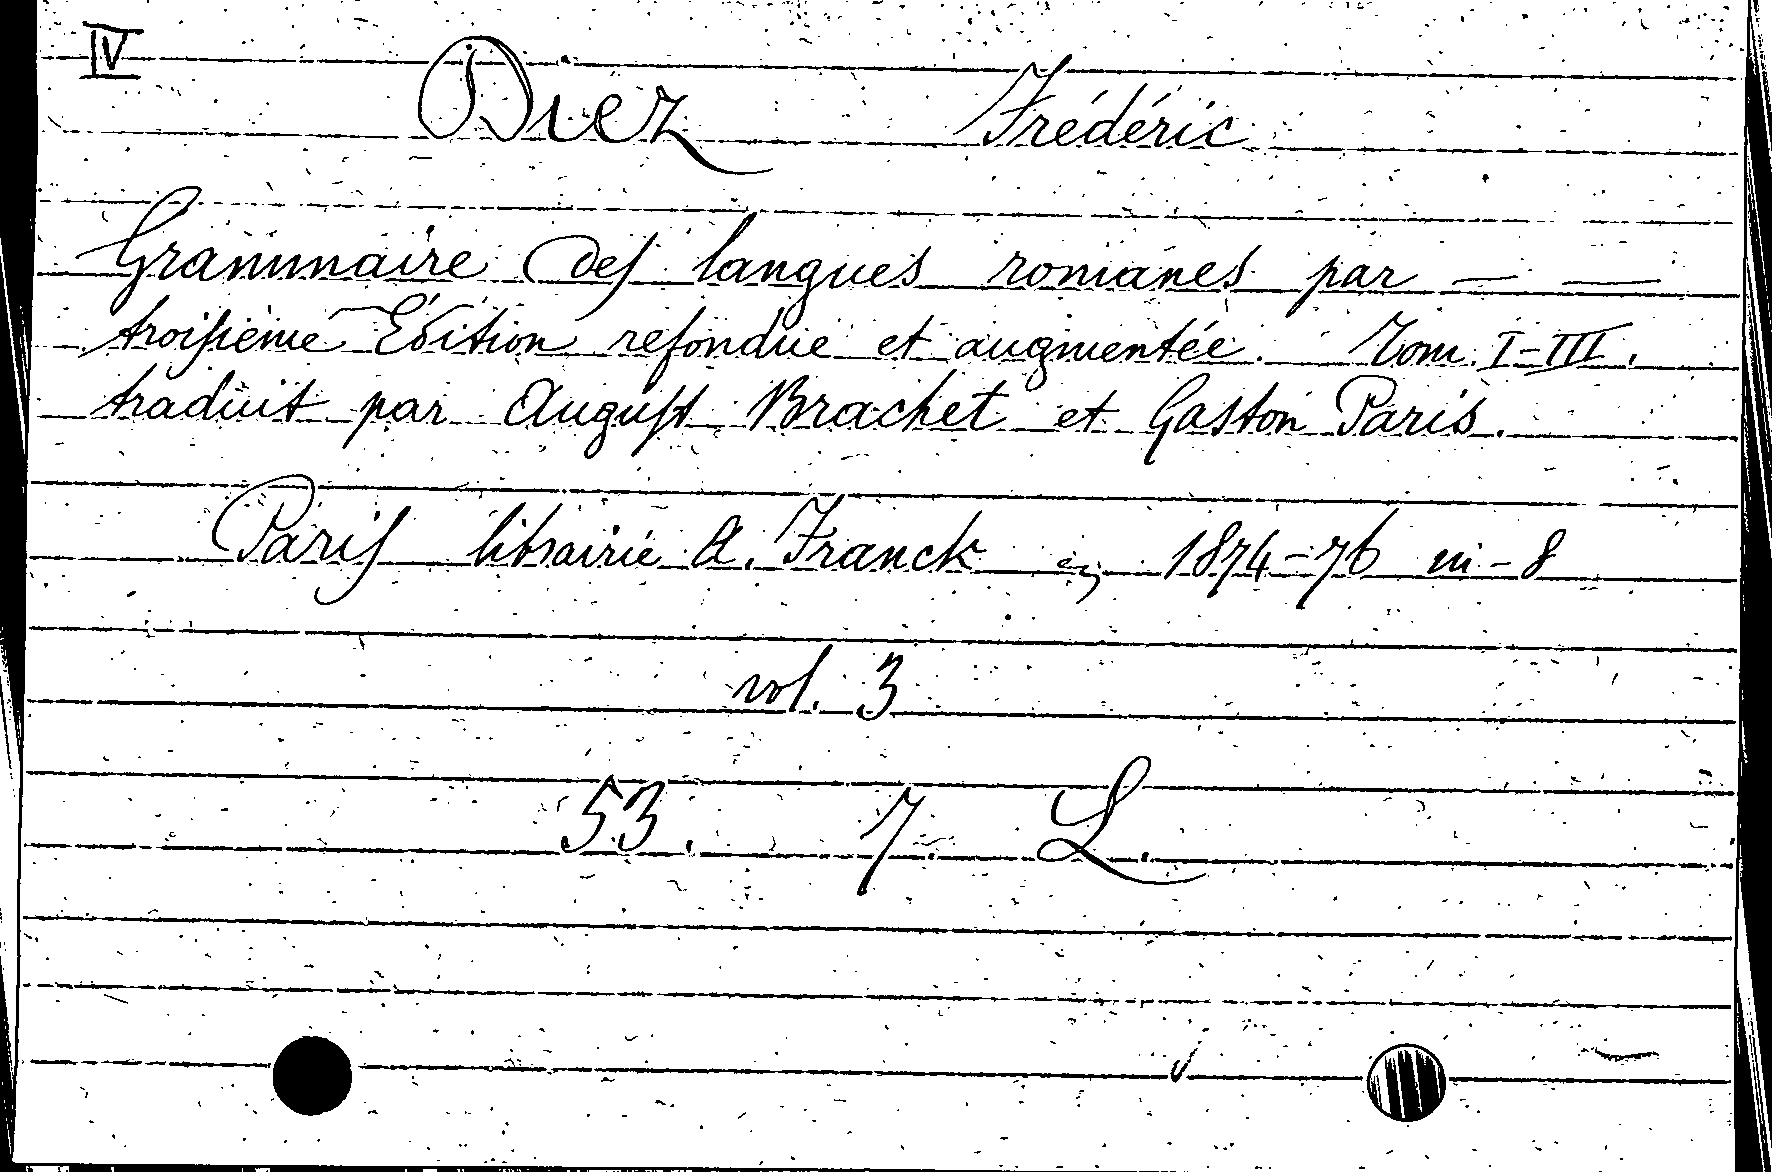 IV
Diez Frédéric
Grammaire des langues romanes par — —
troisième Edition refondue et augmentée. Tom. I-III.
traduit par August Brachet et Gaston Paris.
Paris librairie A. Franck 1874-76 in-8
vol. 3
53. 7. L.